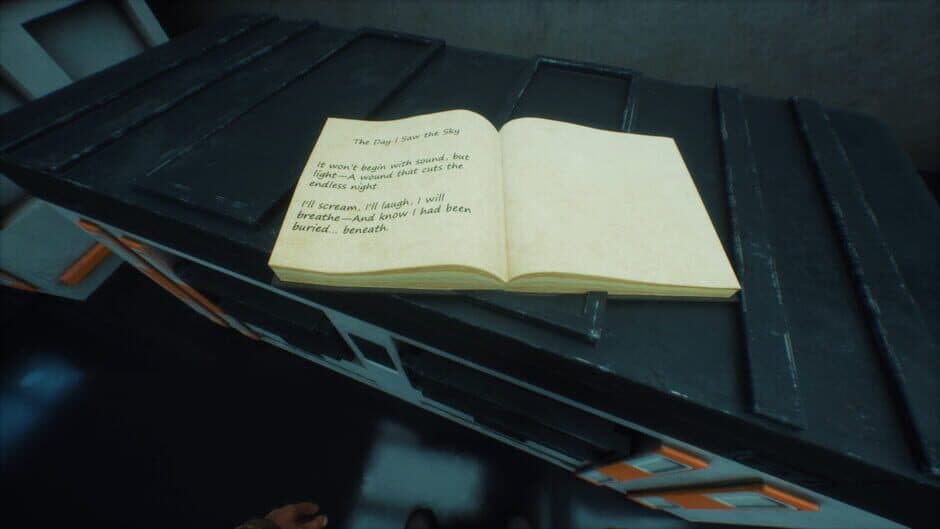 The Day I Saw the Sky
It won't begin with sound, but
light—A wound that cuts the
endless night
I'll scream, I'll laugh, I will
breathe—And know I had been
buried... beneath